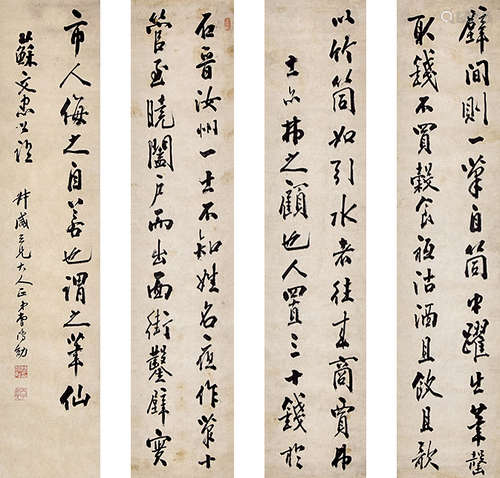 石晉汝州一士不知姓名夜作筆十
管至曉闔戶而出面街鑿壁實
以竹筒如引水者往來商賈弗
士亦弗之顧也人置三十錢於
壁間則一筆自筒中躍出筆罄
取錢不買穀食祇沽酒且飲且歌
市人侮之自若也謂之筆仙
蘇文忠公語
三兄大人正 弟曹鴻勛